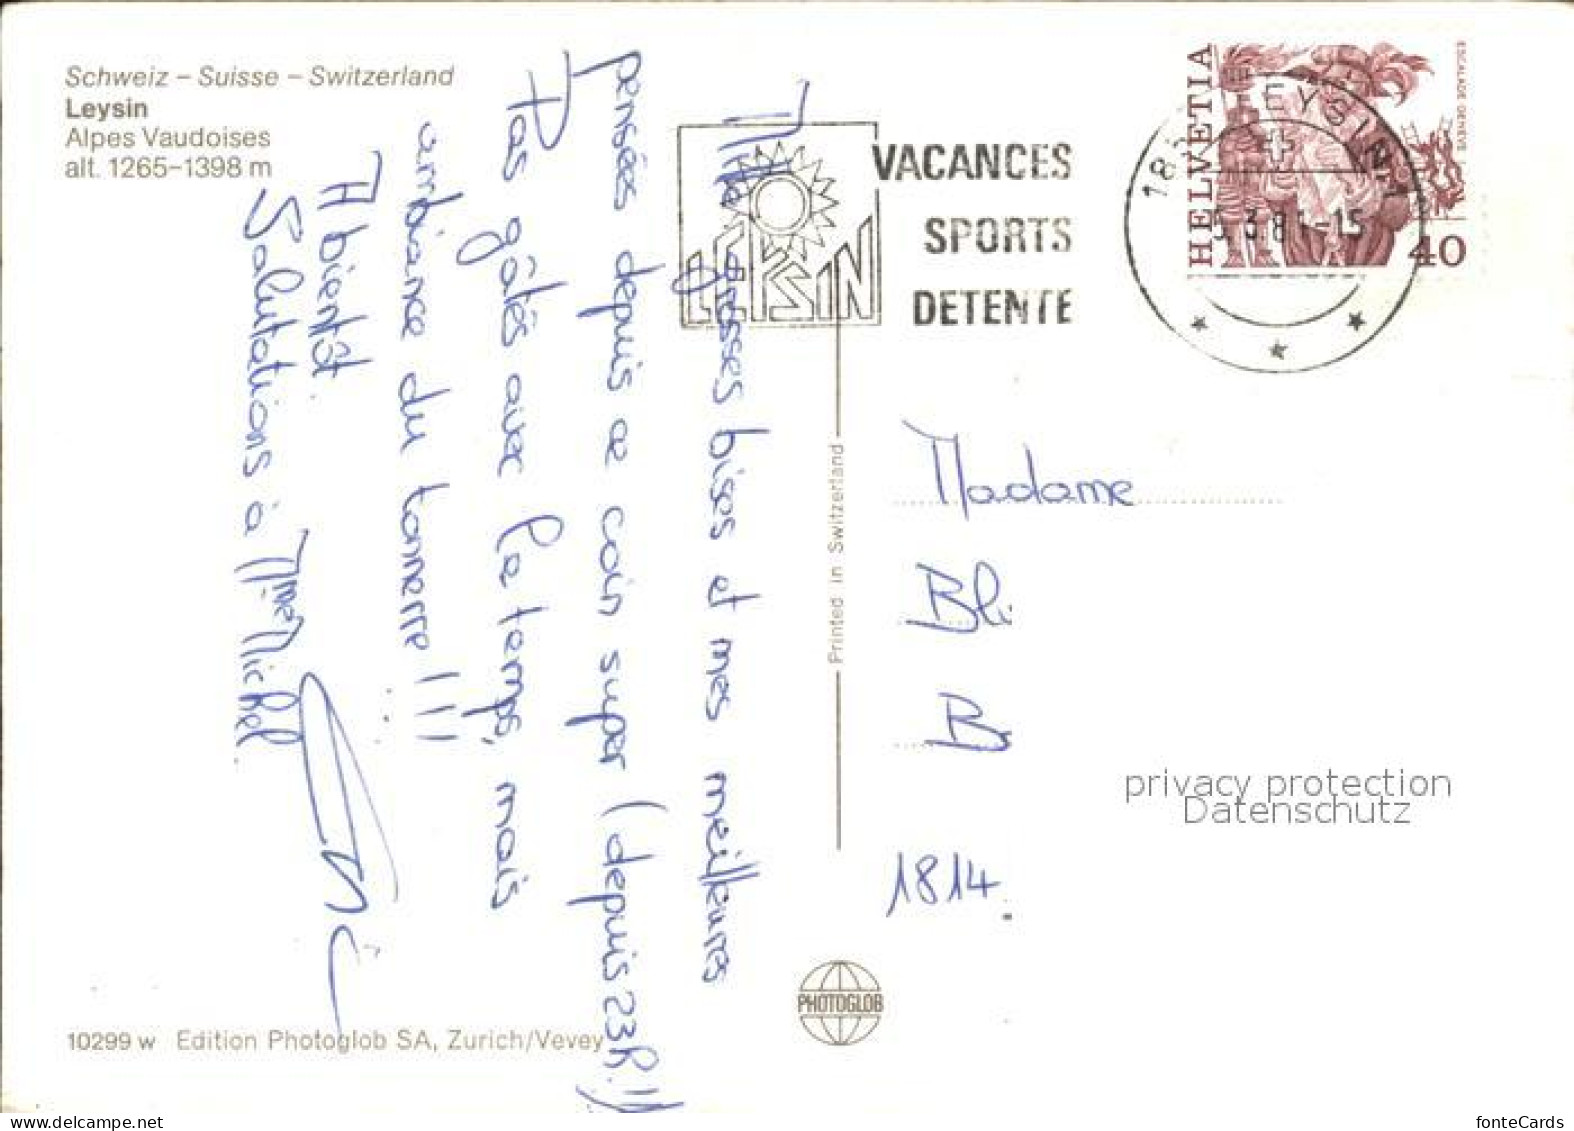 Schweiz – Suisse – Switzerland
Leysin
Alpes Vaudoises
alt. 1265–1398 m
Mille grosses bises et mes meilleures
pensées depuis ce coin super (depuis 23h.!!)
Pas gâtés avec le temps, mais
ambiance du tonnerre!!!
A bientôt.
Salutations à M. Mme Michel.
LEYSIN
VACANCES
SPORTS
DETENTE
HELVETIA
ESCALADE GENEVE
40
LEYSIN
3.81-15
Printed in Switzerland
Madame
Bli
B
1814.
privacy protection
Datenschutz
PHOTOGLOB
10299 w Edition Photoglob SA, Zurich/Vevey
www.delcampe.net
fonteCards